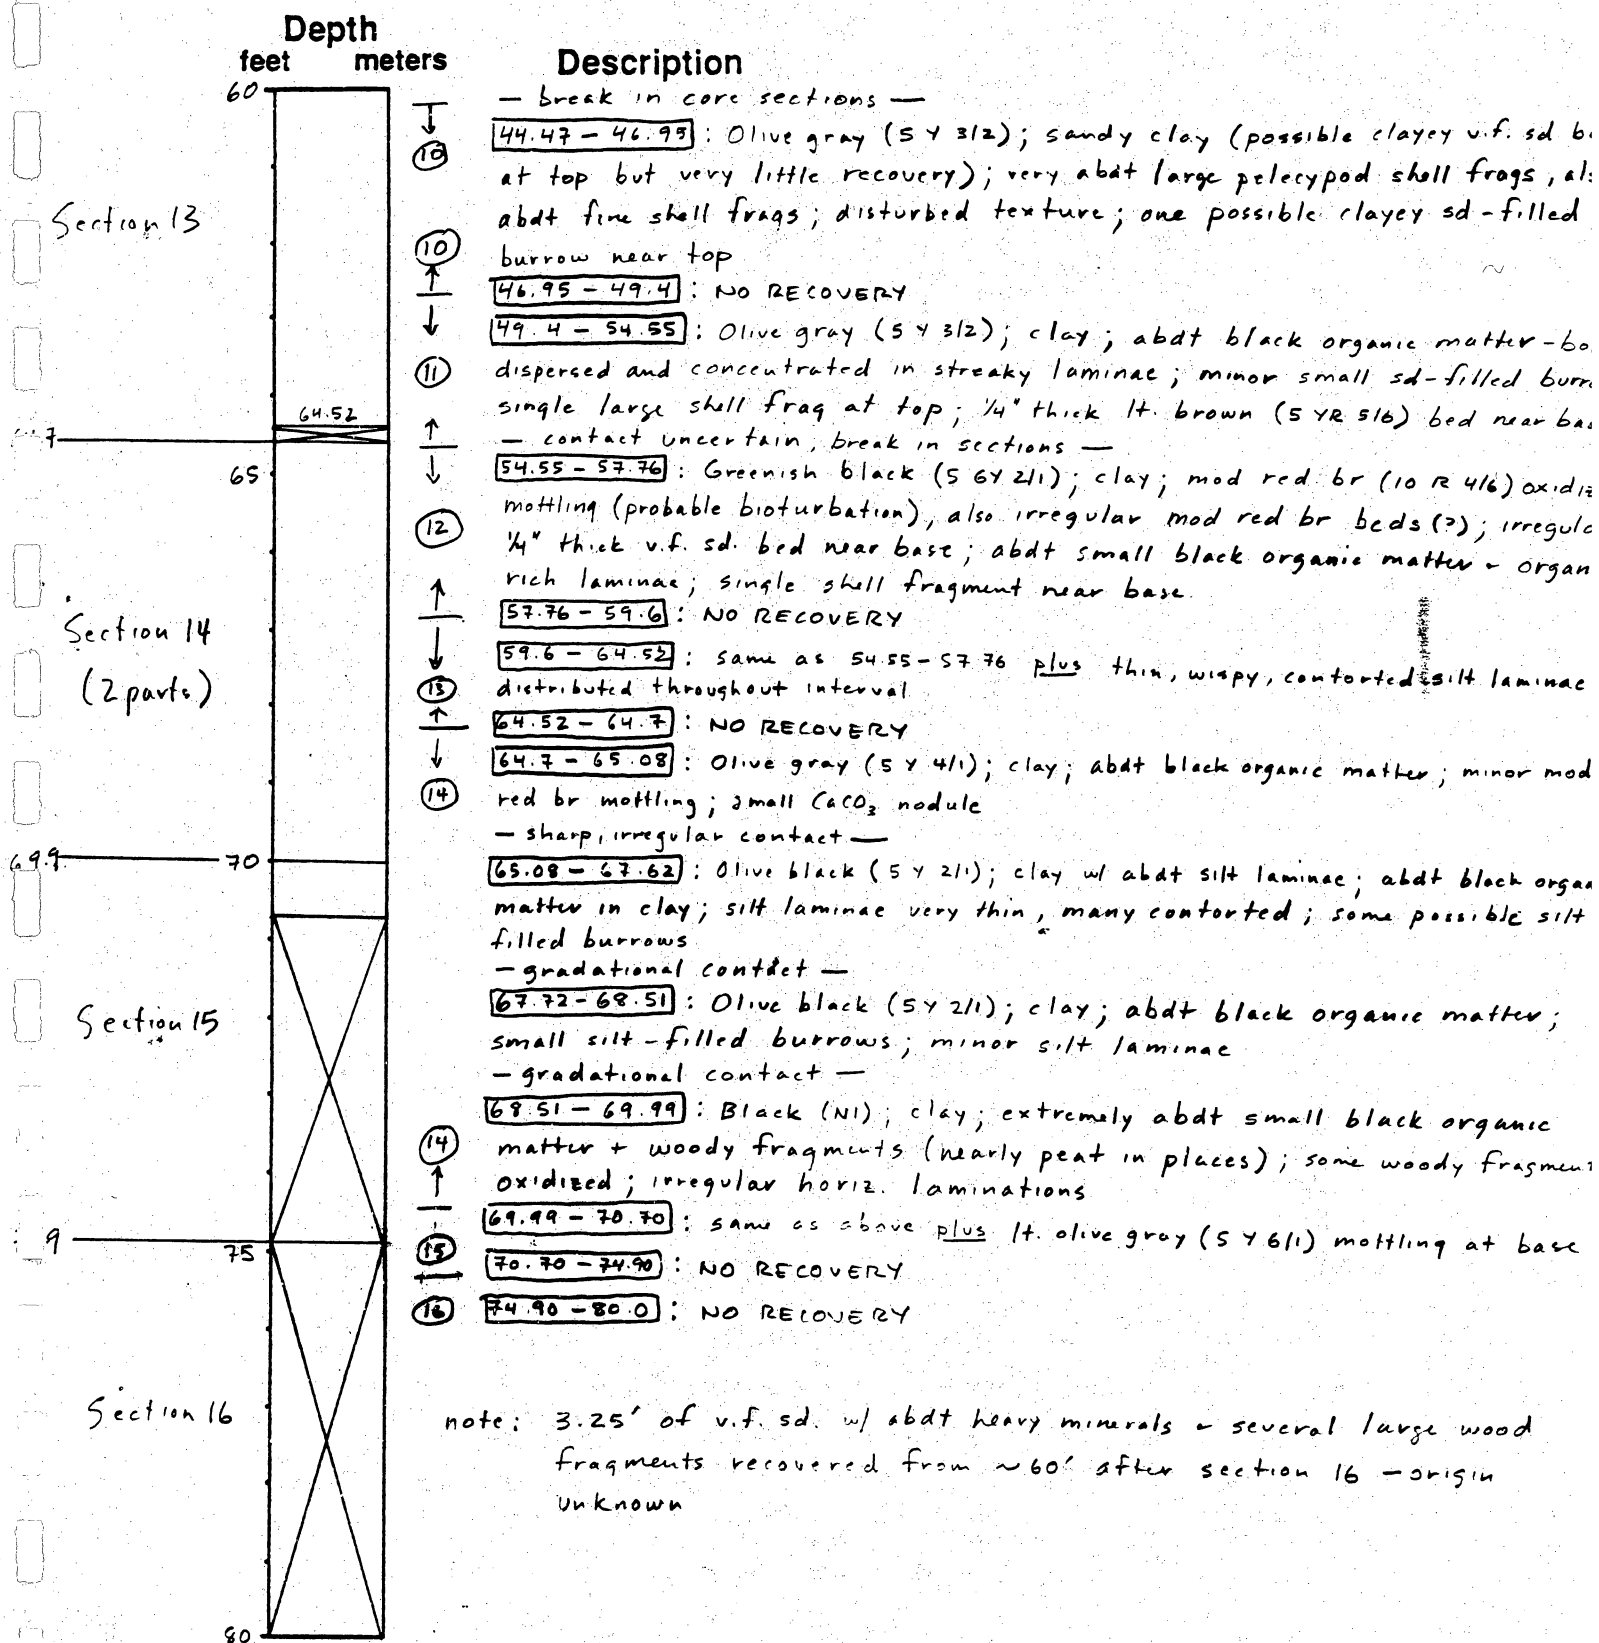 Depth
feet meters Description
60
— break in core sections —
10
44.47 – 46.95 : Olive gray (5 Y 3/2); sandy clay (possible clayey v.f. sd
at top but very little recovery); very abdt large pelecypod shell frags,
Section 13
abdt fine shell frags; disturbed texture; one possible clayey sd-filled
10
burrow near top
46.95 – 49.4 : NO RECOVERY
49.4 – 54.55 : Olive gray (5 Y 3/2); clay; abdt black organic matter -
11
dispersed and concentrated in streaky laminae; minor small sd-filled
64.52
single large shell frag at top; 1/4" thick lt. brown (5 YR 5/6) bed near
— contact uncertain, break in sections —
65
54.55 – 57.76 : Greenish black (5 GY 2/1); clay; mod red br (10 R 4/6)
mottling (probable bioturbation), also irregular mod red br beds (?);
12
1/4" thick v.f. sd. bed near base; abdt small black organic matter -
rich laminae; single shell fragment near base.
57.76 – 59.6 : NO RECOVERY
Section 14
(2 parts)
59.6 – 64.52 : same as 54.55–57.76 plus thin, wispy, contorted silt laminae
13
distributed throughout interval
64.52 – 64.7 : NO RECOVERY
64.7 – 65.08 : Olive gray (5 Y 4/1); clay; abdt black organic matter; minor mod
14
red br mottling; small CaCO3 nodule
— sharp, irregular contact —
69.9 70
65.08 – 67.62 : Olive black (5 Y 2/1); clay w/ abdt silt laminae; abdt black
matter in clay; silt laminae very thin, many contorted; some possible silt
filled burrows
— gradational contact —
Section 15
67.72 – 68.51 : Olive black (5 Y 2/1); clay; abdt black organic matter;
small silt-filled burrows; minor silt laminae
— gradational contact —
68.51 – 69.99 : Black (N1); clay; extremely abdt small black organic
14
matter + woody fragments (nearly peat in places); some woody
oxidized; irregular horiz. laminations
69.99 – 70.70 : same as above plus lt. olive gray (5 Y 6/1) mottling at base
9
75
15
70.70 – 74.90 : NO RECOVERY
16
74.90 – 80.0 : NO RECOVERY
Section 16
note: 3.25' of v.f. sd. w/ abdt heavy minerals - several large wood
fragments recovered from ~60' after section 16 – origin
unknown
80